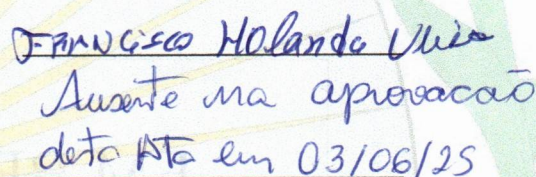 Francisco Holanda
Ausente na aprovacaō
desta Ata em 03/06/25